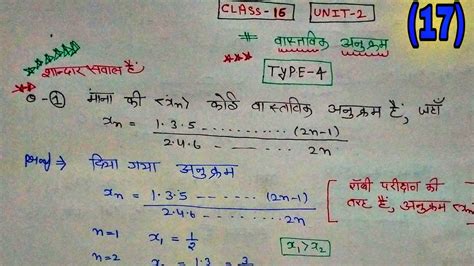 CLASS-16 UNIT-2 (17)
वास्तविक अनुक्रम
TYPE-4
शानदार सवाल है
Q-① माना की <xn> कोई वास्तविक अनुक्रम है, जहाँ
xn = 1·3·5 ......... (2n-1) / 2·4·6 ......... 2n
Proof ⇒ दिया गया अनुक्रम
xn = 1·3·5 ......... (2n-1) / 2·4·6 ......... 2n
रॉबी परीक्षण की
तरह है, अनुक्रम
n=1 x1 = 1/2
x1 > x2
n=2 x2 = 1·3 = 3